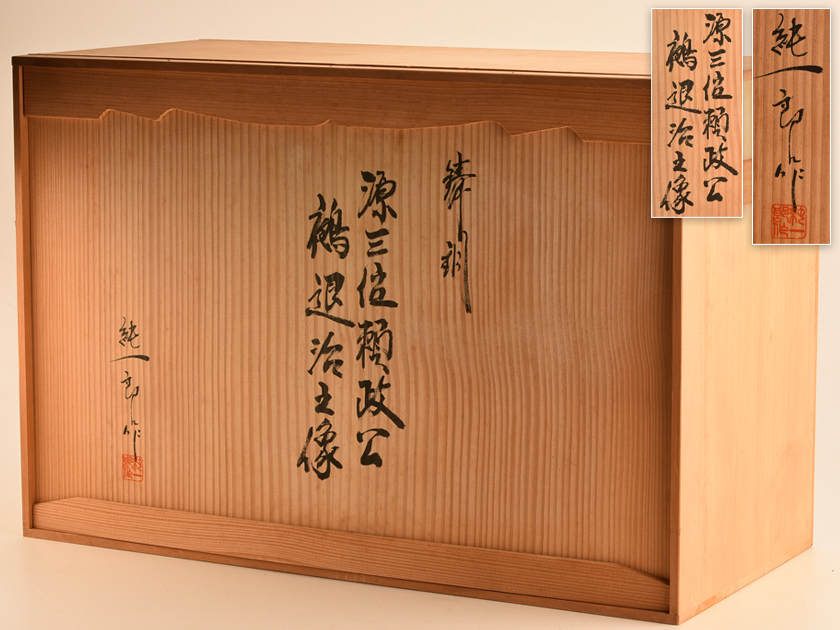 鋳銅
源三位頼政公
鵺退治之像
純一郎作
純一郎作
源三位頼政公
鵺退治之像